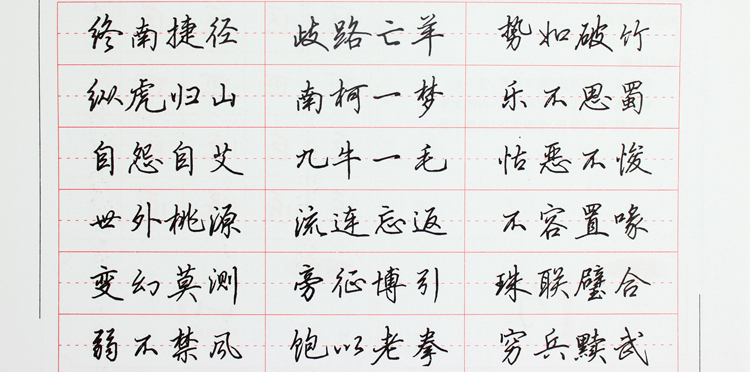 终南捷径 歧路亡羊 势如破竹
纵虎归山 南柯一梦 乐不思蜀
自怨自艾 九牛一毛 怙恶不悛
世外桃源 流连忘返 不容置喙
变幻莫测 旁征博引 珠联璧合
弱不禁风 饱以老拳 穷兵黩武